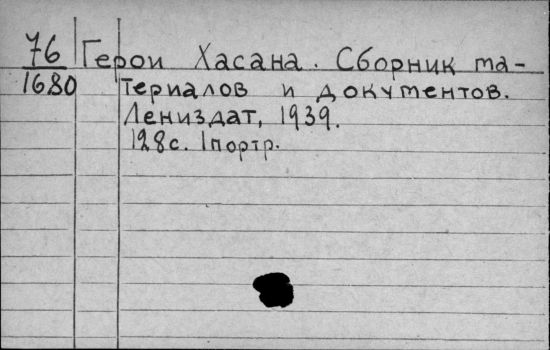 76 Герои Хасана. Сборник ма-
1680 териалов и документов.
Лениздат, 1939.
128с. 1портр.